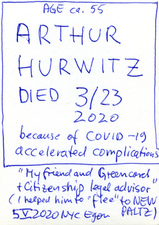 AGE ca. 55
ARTHUR
HURWITZ
DIED 3/23
2020
because of COVID-19
accelerated complications
"My friend and Greencard
+ Citizenship legal advisor"
(I helped him to "flee" to NEW
PALTZ)
5.V.2020 NYC Egon